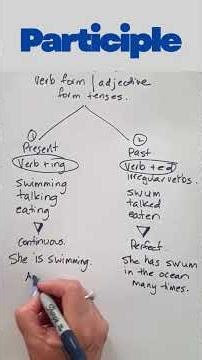 Participle
Verb form | adjective
form tenses.
① ②
Present Past
Verb + ing Verb + ed
irregular verbs.
Swimming swum
talking talked
eating eaten
Continuous. Perfect
She is swimming. She has swum
in the ocean
many times.
A